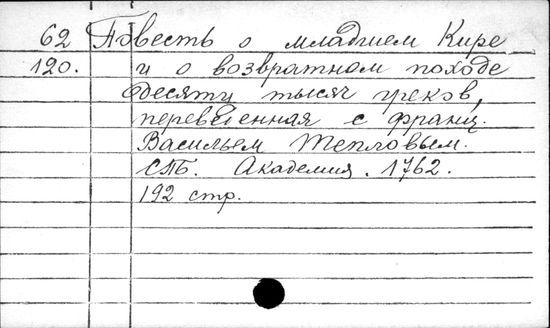 62 Повесть о младшем Кире
120. и о возвратном походе
десяти тысяч греков,
переведенная с франц.
Васильем Тепловым.
СПб. Академия. 1762.
192 стр.